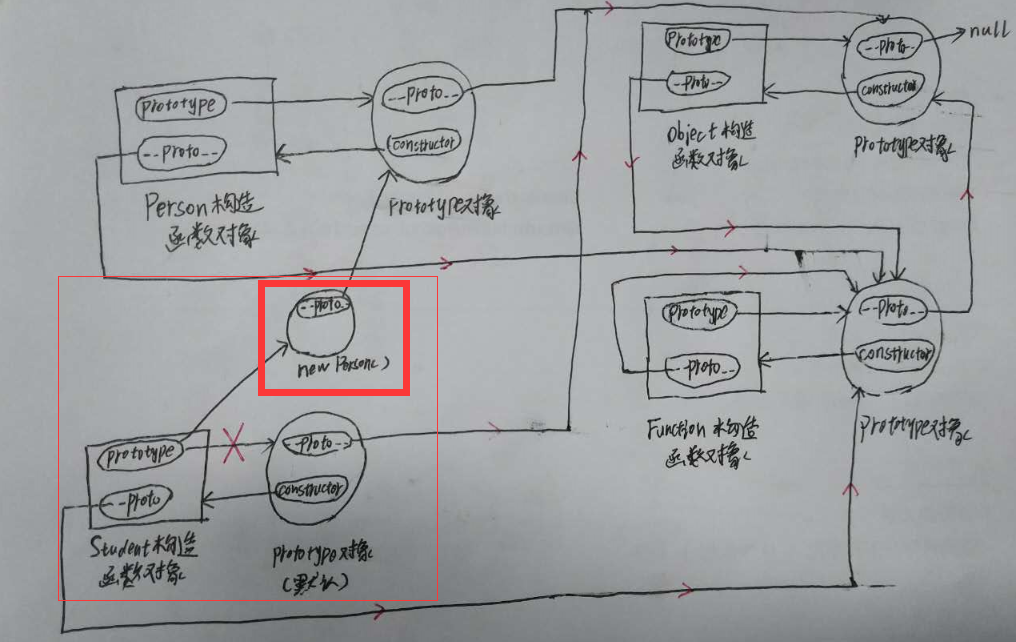 prototype
--proto--
Person构造
函数对象
--proto--
constructor
prototype对象
prototype
--proto--
Object构造
函数对象
--proto--
constructor
null
prototype对象
--proto--
new Person()
prototype
--proto--
Function构造
函数对象
--proto--
constructor
prototype对象
prototype
--proto
Student构造
函数对象
--proto--
constructor
prototype对象
(默认)